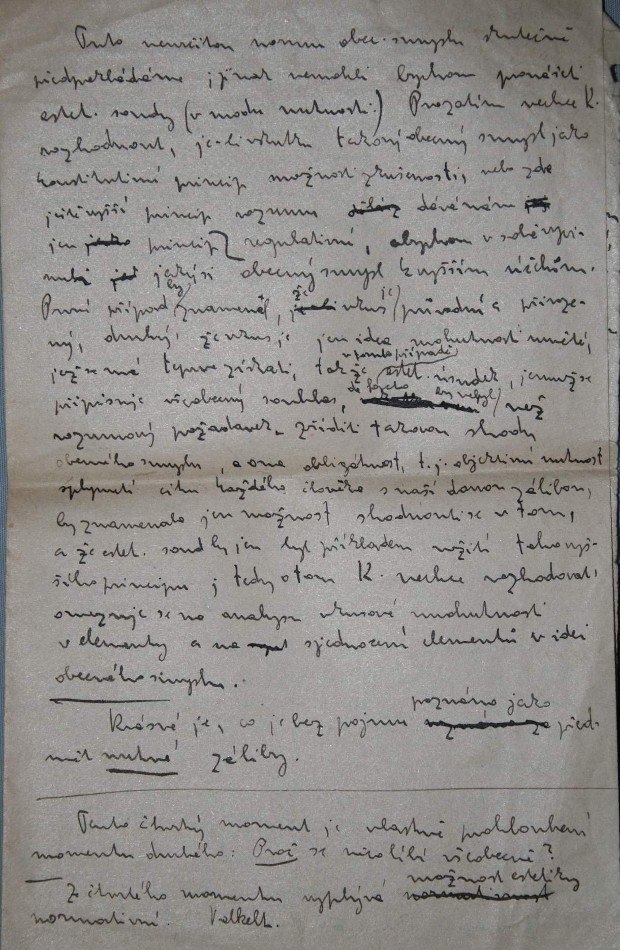 Tuto neurčitou normu obec. smyslu skutečně
předpokládáme jinak nemohli bychom pronášeti
estet. soudy (v modu nutnosti.) Prozatím nechce K.
rozhodnout, je-li vskutku takový obecný smysl jako
konstitutivní princip možnosti zkušenosti, nebo zda
ještě vyšší princip rozumu dává nám
jen princip regulativní, abychom v sobě vypi-
jakýsi obecný smysl k vyšším účelům.
První případ by znamenal, že vkus je původní a přiroze-
ný, druhý: že vkus je jen idea mohutnosti umělé,
jež se má teprve získati, takže v tomto případě estet. úsudek, jemuž se
připisuje všeobecný souhlas, by nebyl než
rozumový požadavek zříditi takovou shodu
obecného smyslu, a ona obligátnost, t. j. objektivní nutnost
splynutí citu každého člověka s naší danou zálibou,
by znamenalo jen možnost shodnouti se v tom,
a že estet. soud by jen byl příkladem užití toho vyš-
šího principu; tedy o tom K. nechce rozhodovat,
omezuje se na analysu vkusové mohutnosti
v elementy a na sjednocení elementů v idei
obecného smyslu.
Krásné je, co je bez pojmu poznáno jako před-
mět nutné záliby.
Tento čtvrtý moment je vlastně prohloubení
momentu druhého: Proč se něco líbí všeobecně?
Ze čtvrtého momentu vyplývá možnost estetiky
normativní. Volkelt.